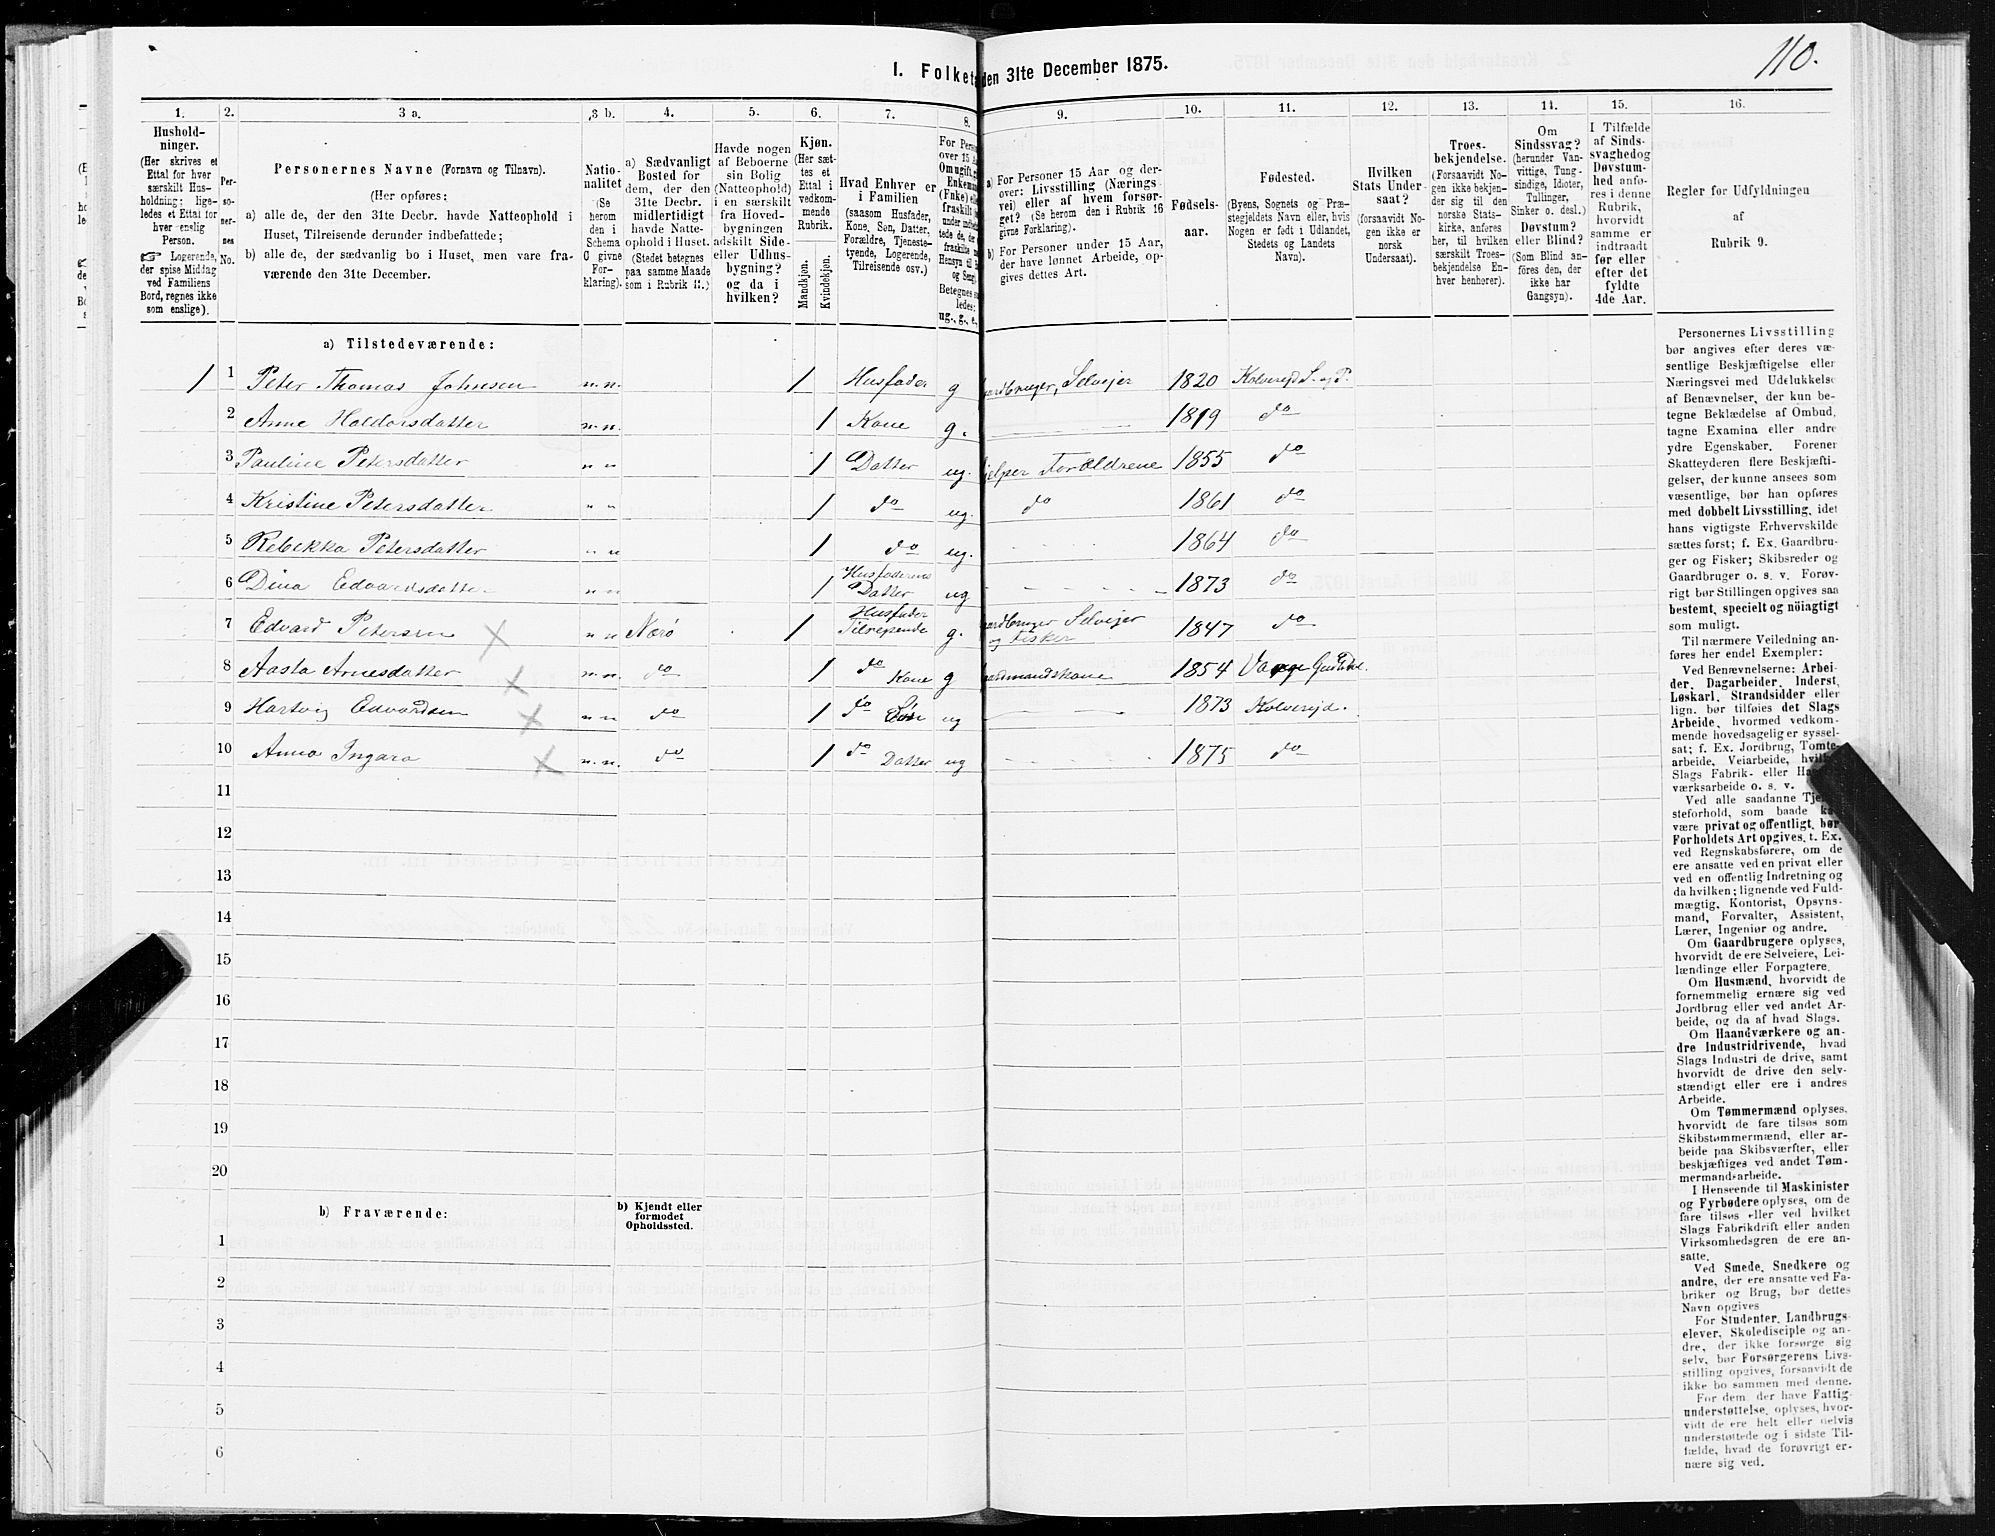 110.
I. Folket den 31te December 1875.
1. 2. 3 a. 3 b. 4. 5. 6. 7. 8. 9. 10. 11. 12. 13. 14. 15. 16.
Hushold-
ninger.
(Her skrives et
Ettal for hver
særskilt Hus-
holdning; lige-
ledes et Ettal for
hver enslig
Person.
☞ Logerende,
der spise Middag
ved Familiens
Bord, regnes ikke
som enslige).
Per-
so-
ner-
nes
No.
Personernes Navne (Fornavn og Tilnavn).
(Her opføres:
a) alle de, der den 31te Decbr. havde Natteophold i
Huset, Tilreisende derunder indbefattede;
b) alle de, der sædvanlig bo i Huset, men vare fra-
værende den 31te December.
Natio-
nalitet
(Se
herom
den i
Schema
C givne
For-
klaring).
a) Sædvanligt
Bosted for
dem, der den
31te Decbr.
midlertidigt
havde Natte-
ophold i Huset.
(Stedet betegnes
paa samme Maade
som i Rubrik 11.)
Havde nogen
af Beboerne
sin Bolig
(Natteophold)
i en særskilt
fra Hoved-
bygningen
adskilt Side-
eller Udhus-
bygning?
og da i
hvilken?
Kjøn.
(Her sæt-
tes et
Ettal i
vedkom-
mende
Rubrik.
Mandkjøn.
Kvindekjøn.
Hvad Enhver er
i Familien
(saasom Husfader,
Kone, Søn, Datter,
Forældre, Tjeneste-
tyende, Logerende,
Tilreisende osv.)
For Perso
over 15 Aar
Om ugift, g
Enkema
(Enke) el
fraskilt
Betegnes s
ledes:
ug., g., e.,
a) For Personer 15 Aar og der-
over: Livsstilling (Nærings
vei) eller af hvem forsør-
get? (Se herom den i Rubrik 16
givne Forklaring).
b) For Personer under 15 Aar,
der have lønnet Arbeide, op-
gives dettes Art.
Fødsels-
aar.
Fødested.
(Byens, Sognets og Præ-
stegjeldets Navn eller, hvis
Nogen er født i Udlandet,
Stedets og Landets
Navn).
Hvilken
Stats Under-
saat?
(forsaavidt No-
gen ikke er
norsk
Undersaat).
Troes-
bekjendelse.
(Forsaavidt No-
gen ikke bekjen-
der sig til den
norske Stats-
kirke, anføres
her, til hvilken
særskilt Troes-
bekjendelse En-
hver henhører).
Om
Sindssvag?
(herunder Van-
vittige, Tung-
sindige, Idioter,
Tullinger,
Sinker o. desl.)
Døvstum?
eller Blind?
(Som Blind an-
føres den, der
ikke har
Gangsyn).
I Tilfælde
af Sinds-
svaghed og
Døvstum-
hed anfø-
res i denne
Rubrik,
hvorvidt
samme er
indtraadt
før eller
efter det
fyldte
4de Aar.
Regler for Udfyldningen
af
Rubrik 9.
a) Tilstedeværende:
1 1 Peter Thomas Johnsen n. n. 1 Husfader g aardbruger, Selvejer 1820 Kolverejd S. og P.
2 Anne Haldorsdatter n. n. 1 Kone g. 1819 do
3 Pauline Petersdatter " " 1 Datter ug. jelper Forældrene 1855 do
4 Kristine Petersdatter " " 1 do ug. do 1861 do
5 Rebekka Petersdatter " " 1 do ug. 1864 do
6 Dina Edvardsdatter " " 1 Husfaderens
Datter ug 1873 do
7 Edvard Petersen × " " Nærø 1 Husfader
Tilrejsende g. aardbruger Selvejer
og Fisker 1847 do
8 Aasta Arnesdatter × n. n. do 1 do Kone g aardmandskone 1854
9 Hartvig Edvardsen × " " do 1 do Søn ug 1873 Kolverejd.
10 Anna Ingara × n. n. do 1 do Datter ug 1875 do
11
12
13
14
15
16
17
18
19
20
b) Fraværende:
b) Kjendt eller
formodet
Opholdssted.
1
2
3
4
5
6
Personernes Livsstilling
bør angives efter deres væ-
sentlige Beskjæftigelse eller
Næringsvei med Udelukkelse
af Benævnelser, der kun be-
tegne Beklædelse af Ombud,
tagne Examina eller andre
ydre Egenskaber. Forener
Skatteyderen flere Beskjæfti-
gelser, der kunne ansees som
væsentlige, bør han opføres
med dobbelt Livsstilling, idet
hans vigtigste Erhvervskilde
sættes først; f. Ex. Gaardbru-
ger og Fisker; Skibsreder og
Gaardbruger o. s. v. Forøv-
rigt bør Stillingen opgives saa
bestemt, specielt og nøiagtigt
som muligt.
Til nærmere Veiledning an-
føres her endel Exempler:
Ved Benævnelserne: Arbei-
der, Dagarbeider, Inderst,
Løskarl, Strandsidder eller
lign. bør tilføies det Slags
Arbeide, hvormed vedkom-
mende hovedsagelig er syssel-
sat; f. Ex. Jordbrug, Tomte-
arbeide, Veiarbeide, hvil
Slags Fabrik- eller Ha
værksarbeide o. s. v.
Ved alle saadanne Tje
steforhold, som baade ka
være privat og offentligt, bør
Forholdets Art opgives, t. Ex.
ved Regnskabsførere, om de
ere ansatte ved en privat eller
ved en offentlig Indretning og
da hvilken; lignende ved Fuld-
mægtig, Kontorist, Opsyns-
mand, Forvalter, Assistent,
Lærer, Ingeniør og andre.
Om Gaardbrugere oplyses,
hvorvidt de ere Selveiere, Lei-
lændinge eller Forpagtere.
Om Husmænd, hvorvidt de
fornemmelig ernære sig ved
Jordbrug eller ved andet Ar-
beide, og da af hvad Slags.
Om Haandværkere og an-
dre Industridrivende, hvad
Slags Industri de drive, samt
hvorvidt de drive den selv-
stændigt eller ere i andres
Arbeide.
Om Tømmermænd oplyses,
hvorvidt de fare tilsøs som
Skibstømmermænd, eller ar-
beide paa Skibsværfter, eller
beskjæftiges ved andet Tøm-
mermandsarbeide.
I Henseende til Maskinister
og Fyrbødere oplyses, om de
fare tilsøs eller ved hvilket
Slags Fabrikdrift eller anden
Virksomhedsgren de ere an-
satte.
Ved Smede, Snedkere og
andre, der ere ansatte ved Fa-
briker og Brug, bør dettes
Navn opgives
For Studenter, Landbrugs-
elever, Skoledisciple og an-
dre, der ikke forsørge sig
selv, bør Forsørgerens Livs-
stilling opgives, forsaavidt de
ikke bo sammen med denne.
For dem, der have Fattig-
understøttelse, oplyses, hvor-
vidt de ere helt eller delvis
understøttede og i sidste Til-
fælde, hvad de forøvrigt er-
nære sig ved.